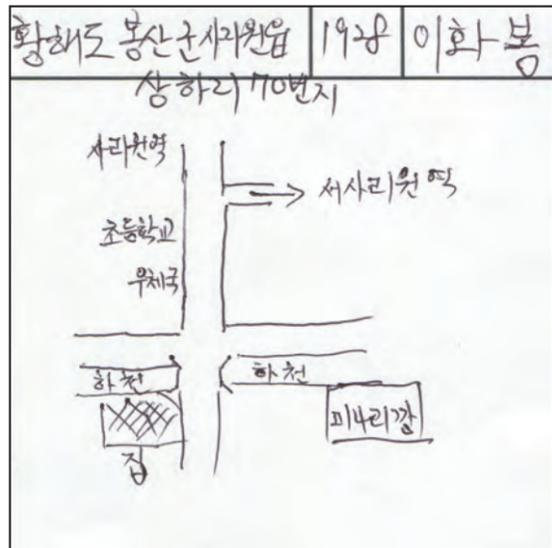 황해도 봉산군 사리원읍 1928 이화봉
상하리 70번지
사리원역
서사리원역
초등학교
우체국
하천 하천
미나리깡
집